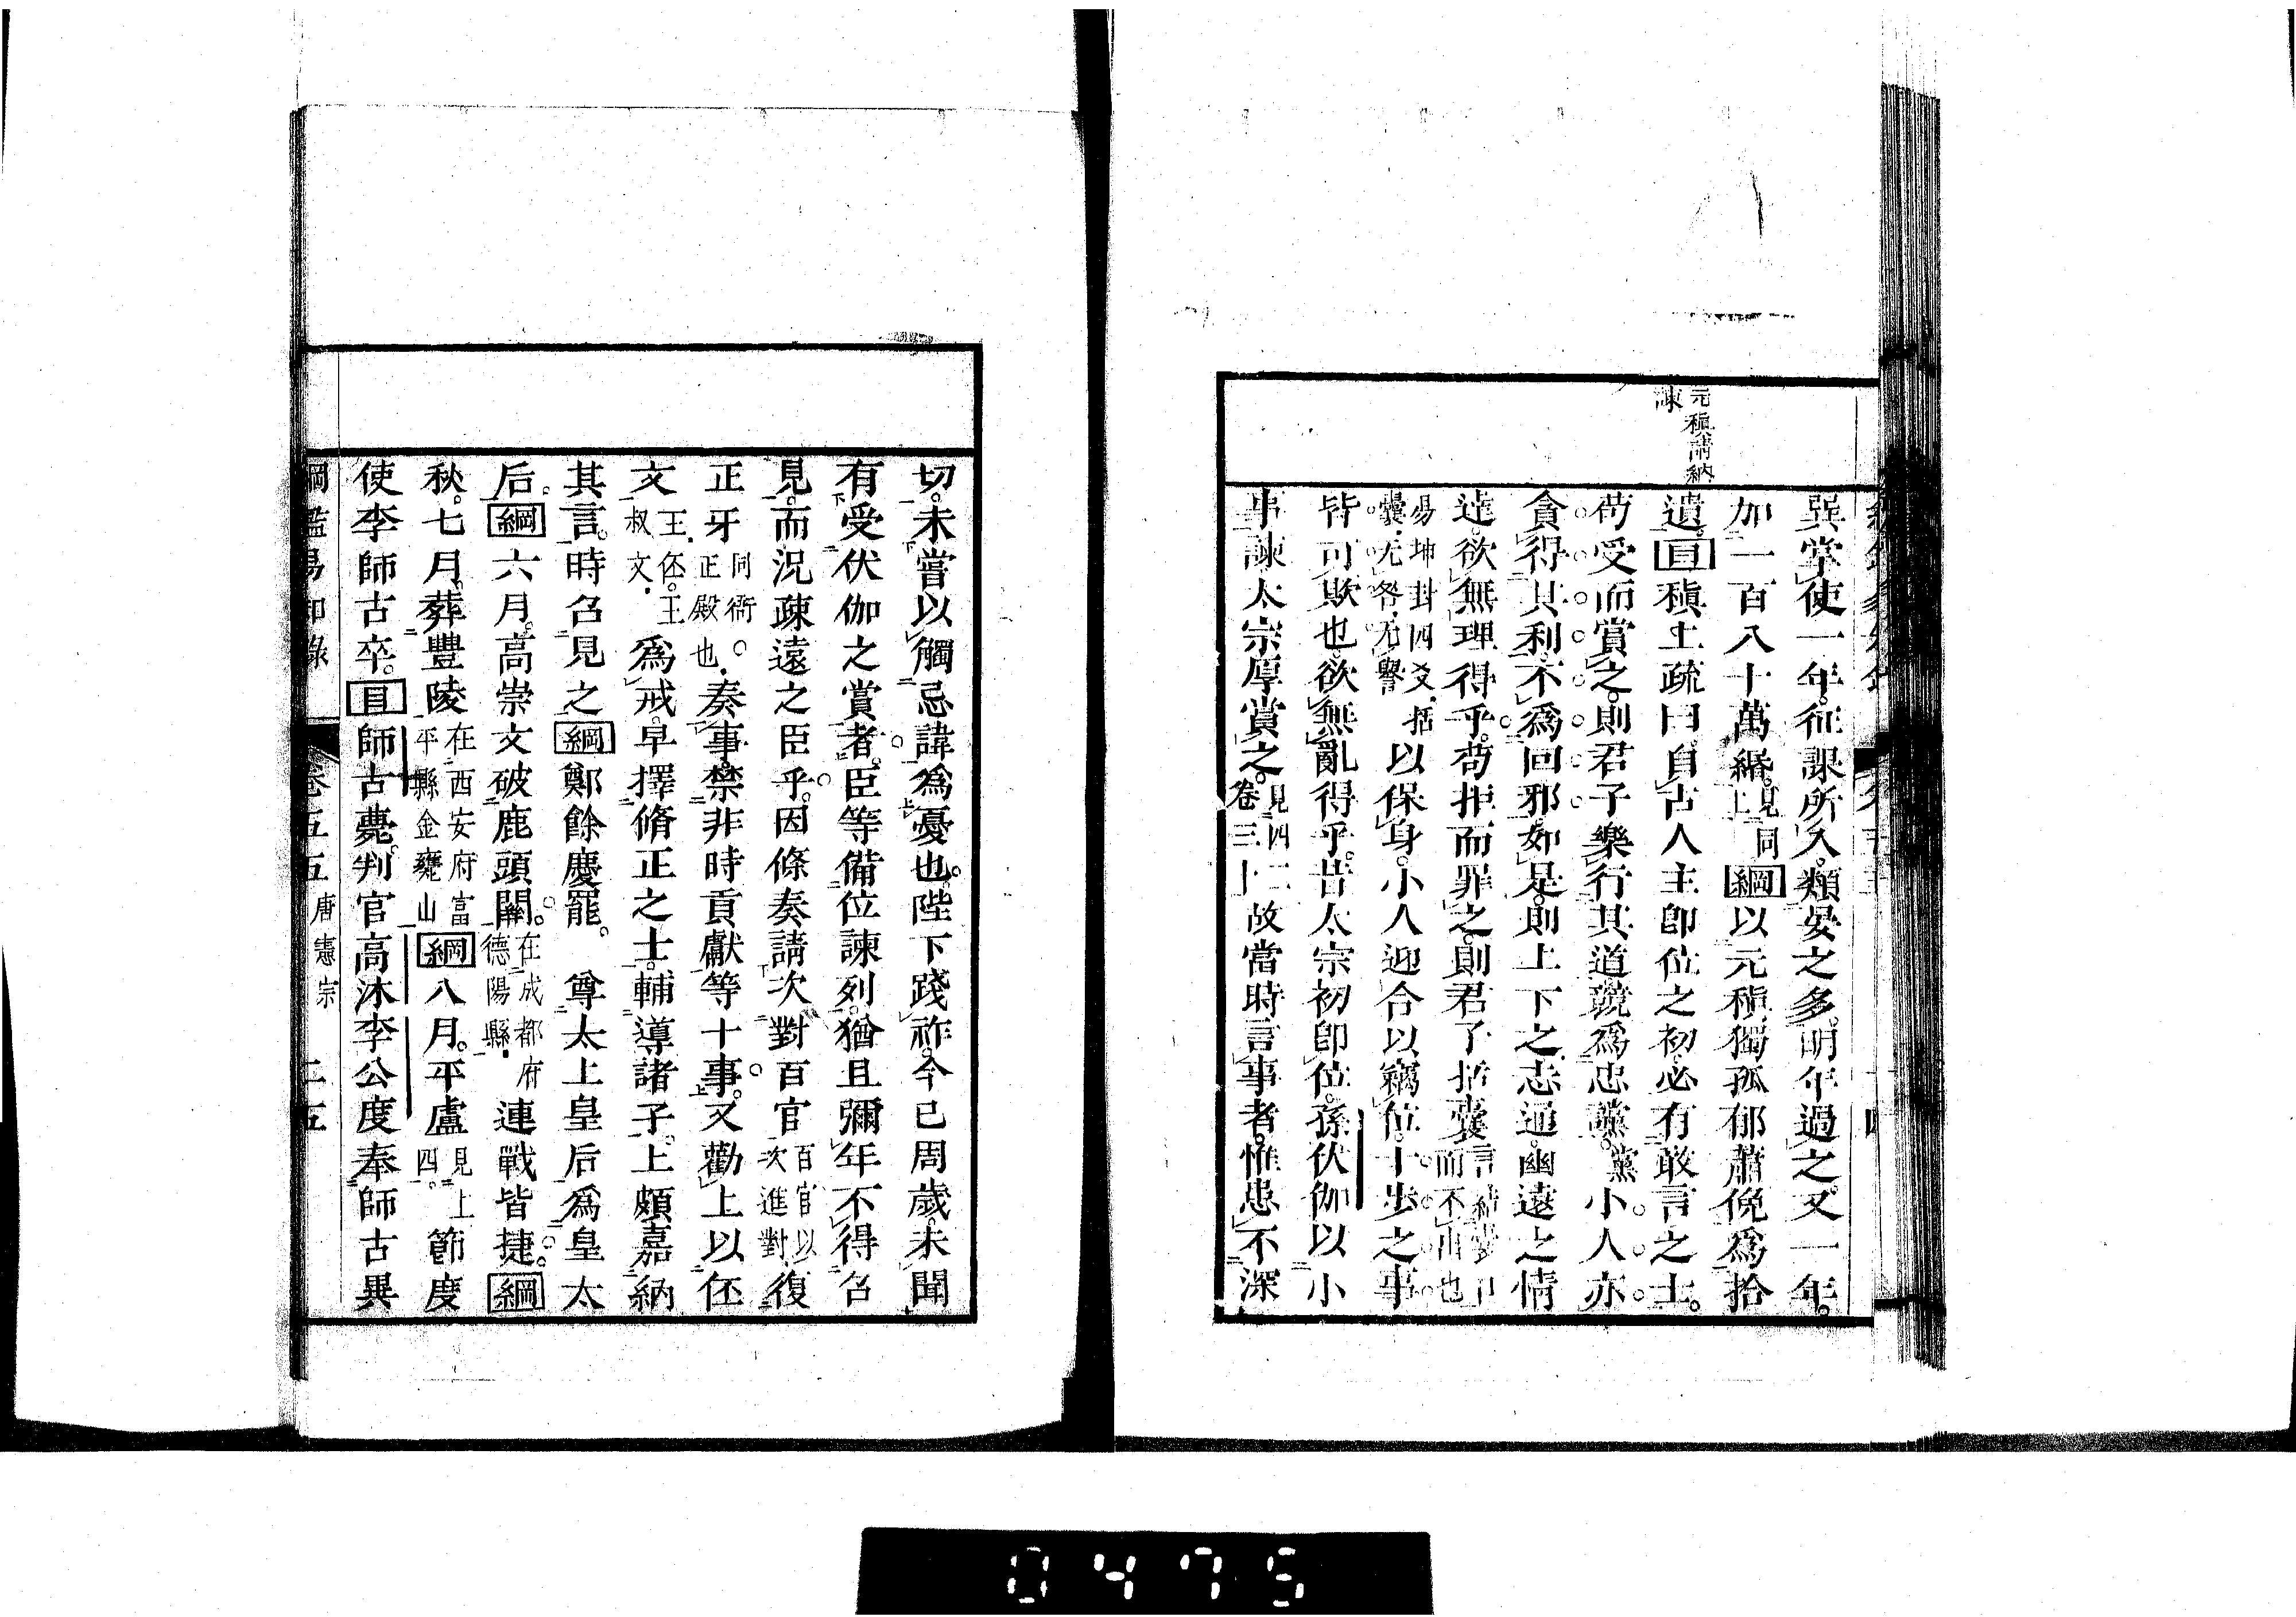 元稹請納
諫
巽掌使一年。征課所入。類晏之多。明年過之。又一年。
加一百八十萬緡。見同上綱以元稹獨孤郁蕭俛爲拾
遺。目稹上疏曰。自古人主卽位之初。必有敢言之士。
苟受而賞之。則君子樂行其道。競爲忠讜。黨小人亦
貪得其利。不爲回邪。如是。則上下之志通。幽遠之情
達。欲無理得乎。苟拒而罪之。則君子括囊言結囊口而不出也
易坤卦四爻。括囊。无咎。无譽以保身。小人迎合以竊位。十步之事
皆可欺也。欲無亂得乎。昔太宗初卽位。孫伏伽以小
事諫。太宗厚賞之。見四卷三十二故當時言事者。惟患不深
切。未嘗以觸忌諱爲憂也。陛下踐祚。今已周歲。未聞
有受伏伽之賞者。臣等備位諫列。猶且彌年不得召
見。而況疎遠之臣乎。因條奏請次對百官百官以次進對。復
正牙同衙。正殿也。奏事。禁非時貢獻等十事。又勸上以伾
文王伾。王叔文。爲戒。早擇脩正之士。輔導諸子。上頗嘉納
其言。時召見之綱鄭餘慶罷。尊太上皇后爲皇太
后。綱六月。高崇文破鹿頭關。在成都府德陽縣。連戰皆捷。綱
秋。七月。葬豐陵在西安府富平縣金甕山綱八月。平盧見上四。節度
使李師古卒。目師古薨。判官高沐李公度奉師古異
綱鑑易知錄
卷五五 唐憲宗 二五